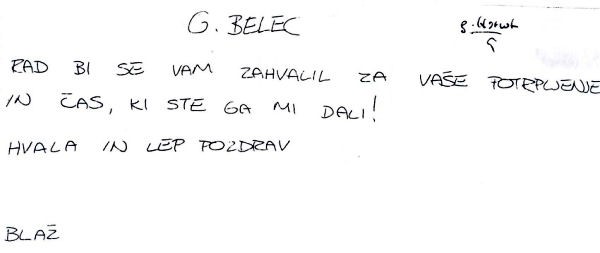 G. BELEC
RAD BI SE VAM ZAHVALIL ZA VAŠE POTRPLJENJE
IN ČAS, KI STE GA MI DALI!
HVALA IN LEP POZDRAV
BLAŽ